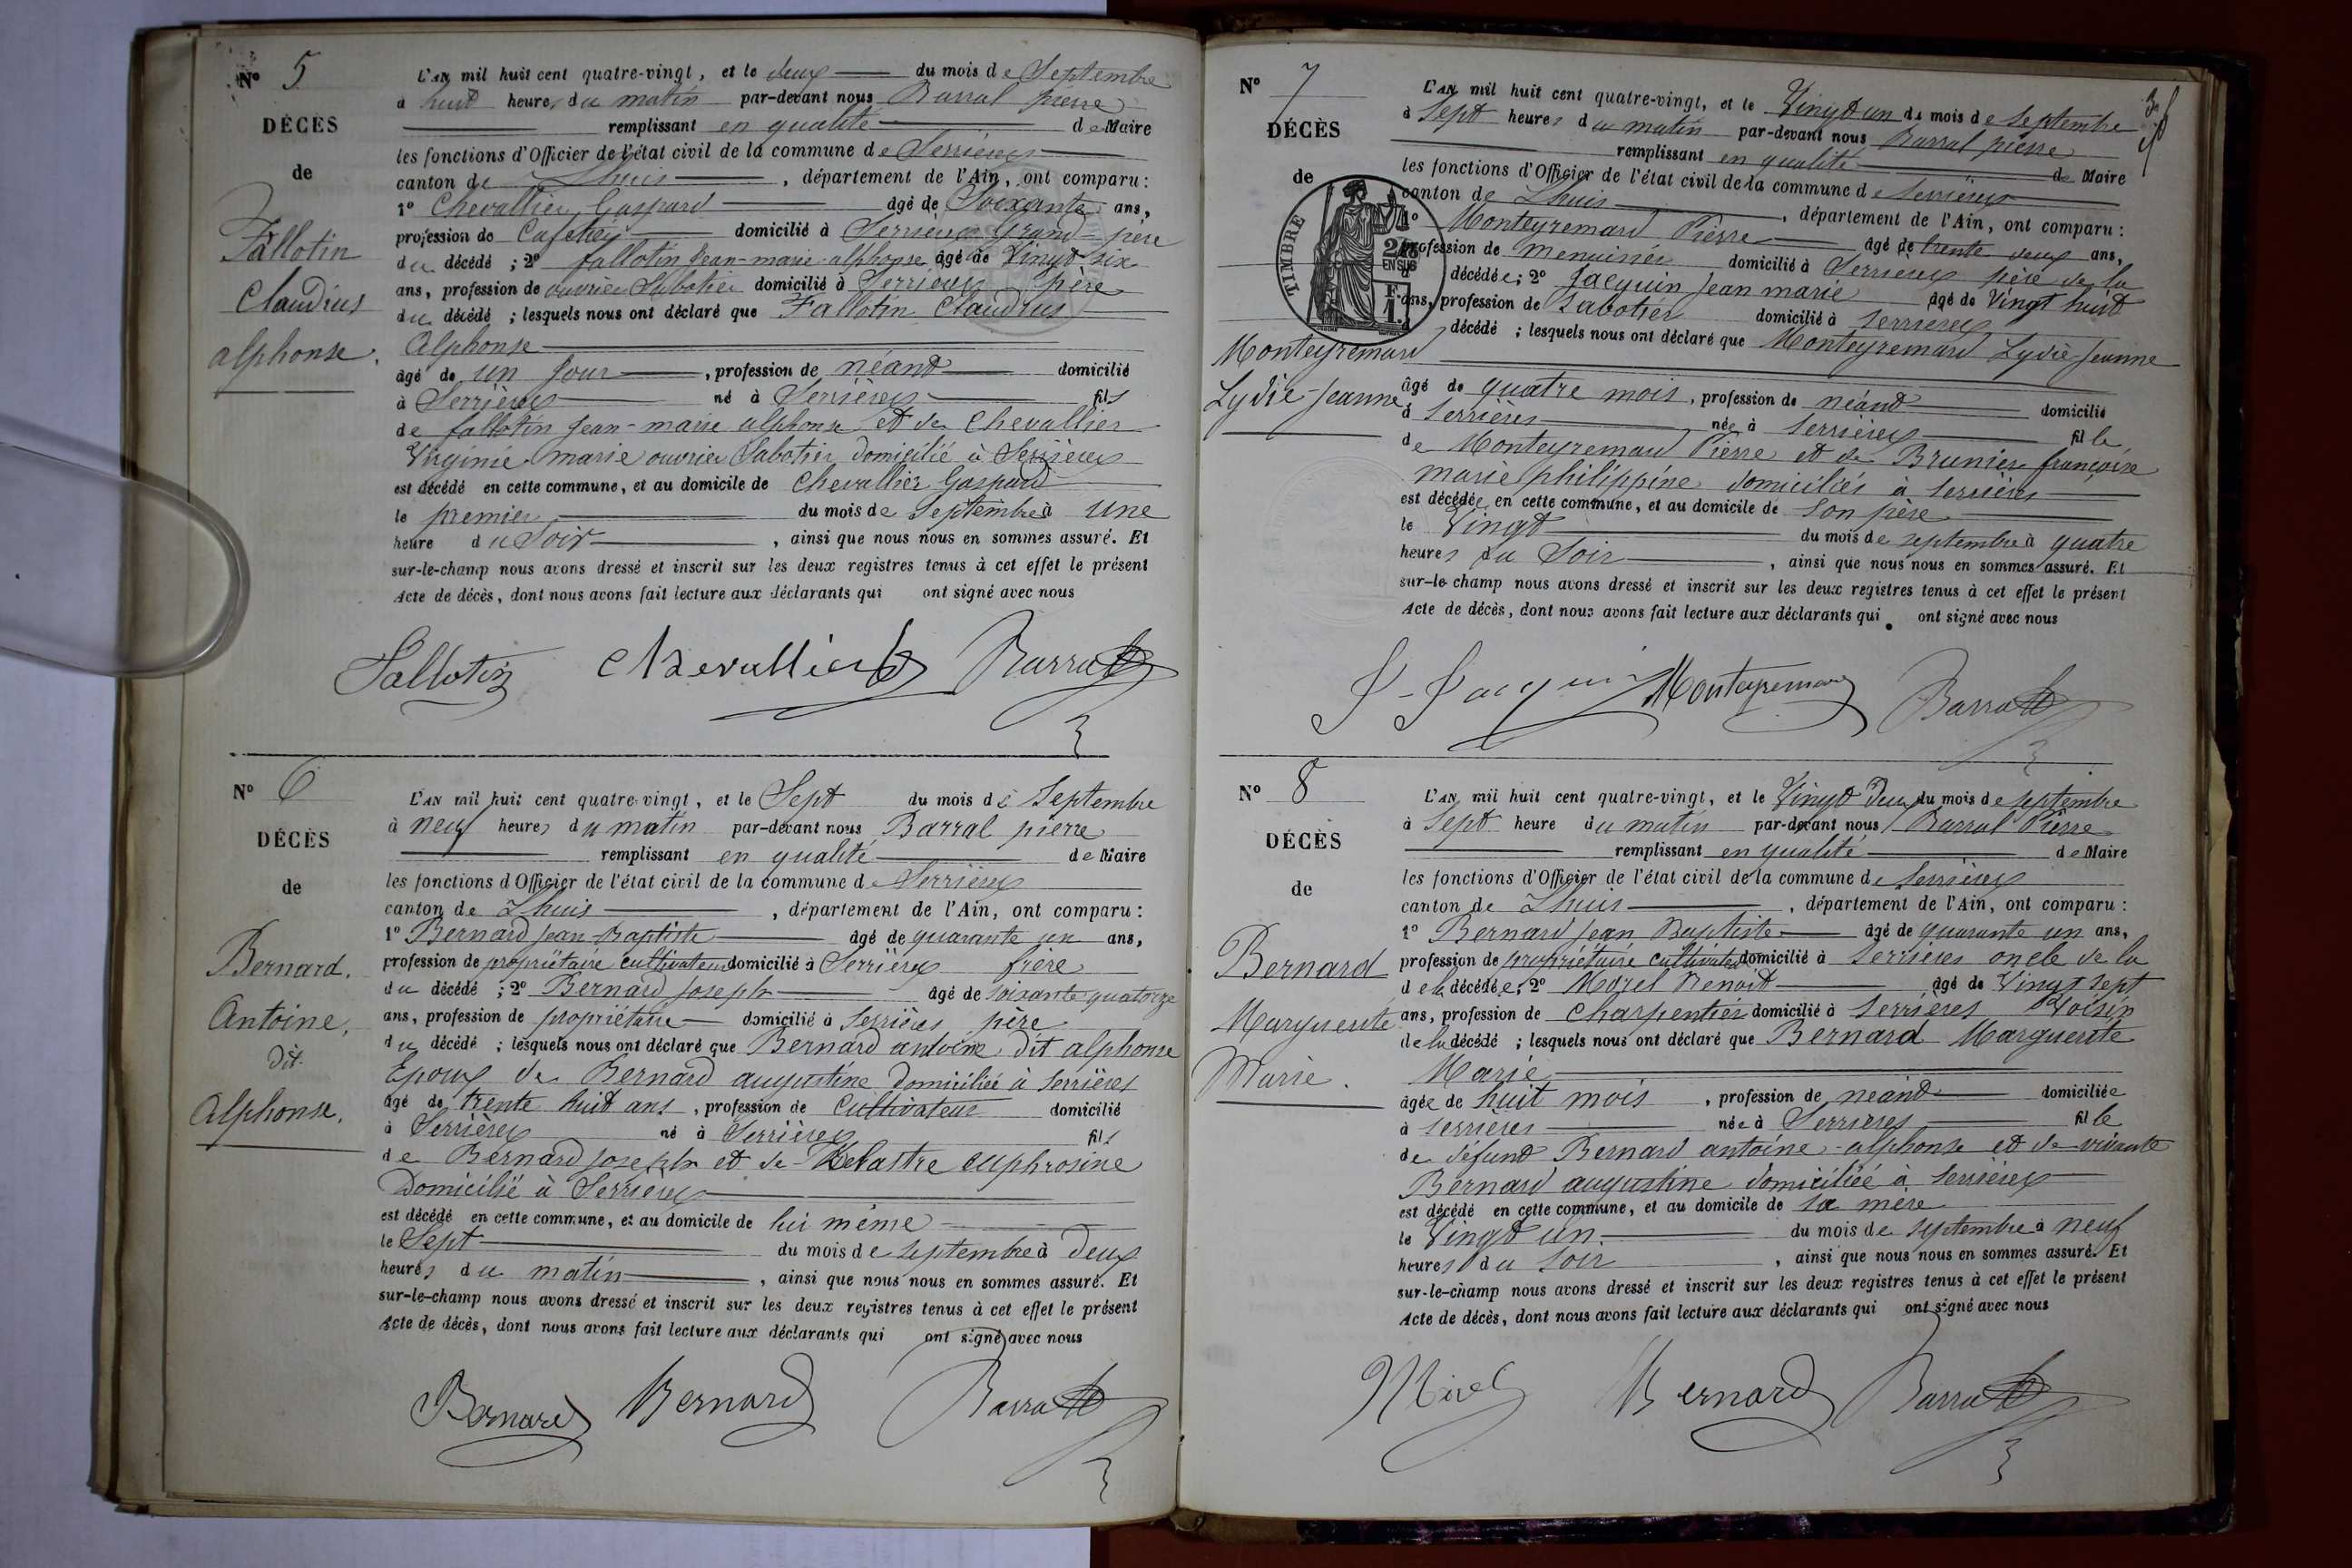 N° 5
DÉCÈS
de
Fallotin
Claudius
alphonse.
L'AN mil huit cent quatre-vingt, et le deux du mois de Septembre
à huit heures du matin par-devant nous Barral pierre
remplissant en qualité de Maire
les fonctions d'Officier de l'état civil de la commune de Serrières
canton de Lhuis, département de l'Ain, ont comparu :
1° Chevallier Gaspard âgé de Soixante ans,
profession de Cafetier domicilié à Serrières Grand-père
du décédé ; 2° fallotin Jean-marie-alphonse âgé de Vingt six
ans, profession de ouvrier Sabotier domicilié à Serrières père
du décédé ; lesquels nous ont déclaré que Fallotin Claudius
Alphonse
âgé de un Jour, profession de néant domicilié
à Serrières né à Serrières fils
de fallotin Jean-marie alphonse et de Chevallier
Virginie marie ouvrier Sabotier domicilié à Serrières
est décédé en cette commune, et au domicile de Chevallier Gaspard
le premier du mois de Septembre à une
heure du Soir, ainsi que nous nous en sommes assuré. Et
sur-le-champ nous avons dressé et inscrit sur les deux registres tenus à cet effet le présent
Acte de décès, dont nous avons fait lecture aux déclarants qui ont signé avec nous
Fallotin Chevallier Barral
N° 6
DÉCÈS
de
Bernard.
Antoine,
dit
Alphonse.
L'AN mil huit cent quatre-vingt, et le Sept du mois de Septembre
à neuf heures du matin par-devant nous Barral pierre
remplissant en qualité de Maire
les fonctions d'Officier de l'état civil de la commune de Serrières
canton de Lhuis, département de l'Ain, ont comparu :
1° Bernard Jean-Baptiste âgé de quarante un ans,
profession de propriétaire cultivateur domicilié à Serrières frère
du décédé ; 2° Bernard Joseph âgé de Soixante quatorze
ans, profession de propriétaire domicilié à Serrières père
du décédé ; lesquels nous ont déclaré que Bernard antoine dit alphonse
Epoux de Bernard augustine domiciliée à Serrières
âgé de trente huit ans, profession de Cultivateur domicilié
à Serrières né à Serrières fils
de Bernard Joseph et de Delastre euphrosine
Domicilié à Serrières
est décédé en cette commune, et au domicile de lui même
le Sept du mois de Septembre à deux
heures du matin, ainsi que nous nous en sommes assuré. Et
sur-le-champ nous avons dressé et inscrit sur les deux registres tenus à cet effet le présent
Acte de décès, dont nous avons fait lecture aux déclarants qui ont signé avec nous
Bernard Bernard Barral
N° 7
DÉCÈS
de
TIMBRE
Monteyremard
Lydie-Jeanne
L'AN mil huit cent quatre-vingt, et le Vingt un du mois de Septembre
à Sept heures du matin par-devant nous Barral pierre
remplissant en qualité de Maire
les fonctions d'Officier de l'état civil de la commune de Serrières
canton de Lhuis, département de l'Ain, ont comparu :
1° Monteyremard Pierre âgé de trente deux ans,
profession de menuisier domicilié à Serrières père de la
décédée ; 2° Jacquin Jean marie âgé de Vingt huit
ans, profession de Sabotier domicilié à Serrières
décédé ; lesquels nous ont déclaré que Monteyremard Lydie-Jeanne
âgé de quatre mois, profession de néant domicilié
à Serrières née à Serrières fille
de Monteyremard Pierre et de Brunier françoise
marie philippine domiciliés à Serrières
est décédée en cette commune, et au domicile de Son père
le Vingt du mois de septembre à quatre
heures du Soir, ainsi que nous nous en sommes assuré. Et
sur-le-champ nous avons dressé et inscrit sur les deux registres tenus à cet effet le présent
Acte de décès, dont nous avons fait lecture aux déclarants qui ont signé avec nous
J-Jacquin Monteyremard Barral
N° 8
DÉCÈS
de
Bernard
Marguerite
Marie.
L'AN mil huit cent quatre-vingt, et le Vingt Deux du mois de septembre
à Sept heure du matin par-devant nous Barral Pierre
remplissant en qualité de Maire
les fonctions d'Officier de l'état civil de la commune de Serrières
canton de Lhuis, département de l'Ain, ont comparu :
1° Bernard Jean Baptiste âgé de quarante un ans,
profession de propriétaire cultivateur domicilié à Serrières oncle de la
de la décédée ; 2° Morel Benoit âgé de Vingt Sept
ans, profession de Charpentier domicilié à Serrières Voisin
de la décédé ; lesquels nous ont déclaré que Bernard Marguerite
Marie
âgée de huit mois, profession de néant domiciliée
à Serrières née à Serrières fille
de défunt Bernard antoine-alphonse et de vivante
Bernard augustine domiciliée à Serrières
est décédé en cette commune, et au domicile de Sa mère
le Vingt un du mois de Septembre à neuf
heures du Soir, ainsi que nous nous en sommes assuré. Et
sur-le-champ nous avons dressé et inscrit sur les deux registres tenus à cet effet le présent
Acte de décès, dont nous avons fait lecture aux déclarants qui ont signé avec nous
Bernard Barral